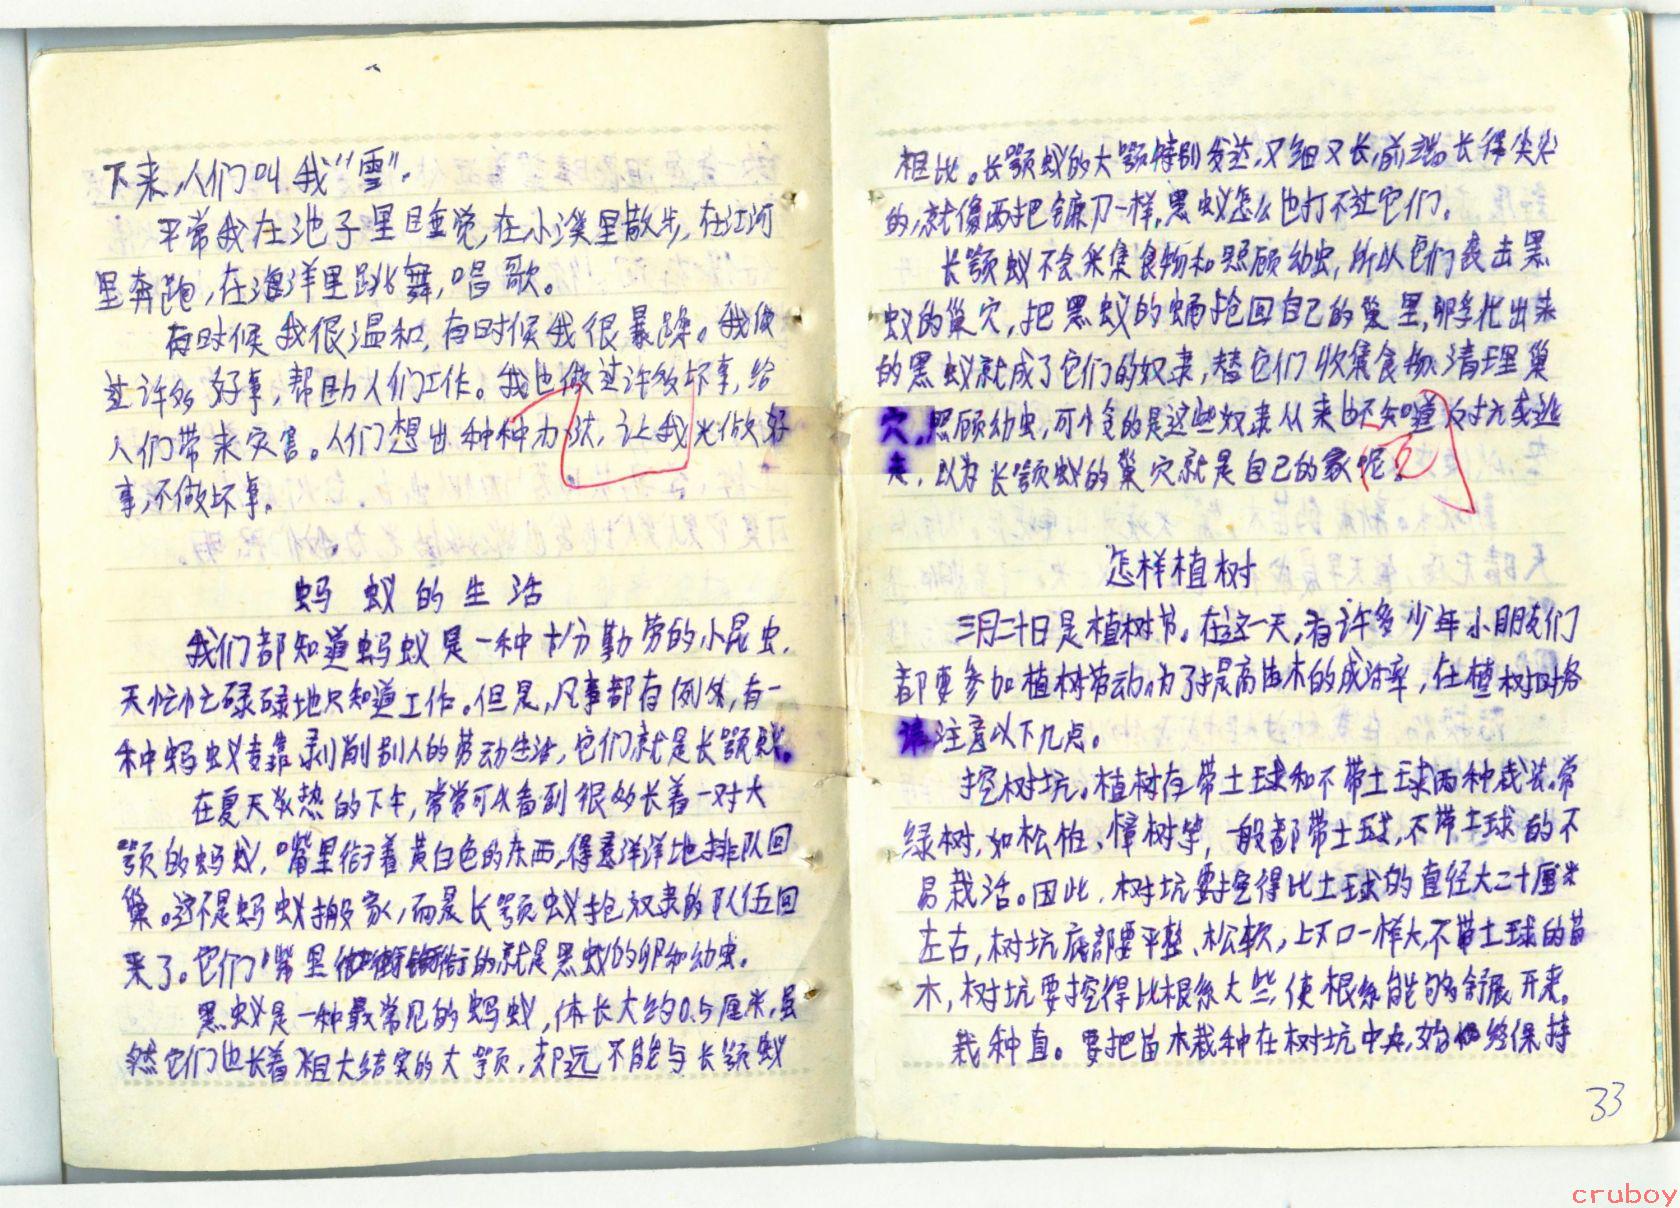 下来，人们叫我“雪”。
平常我在池子里睡觉，在小溪里散步，在江河
里奔跑，在海洋里跳舞，唱歌。
有时候我很温和，有时候我很暴躁。我做
过许多好事，帮助人们工作。我也做过许多坏事，给
人们带来灾害。人们想出种种办法，让我光做好
事，不做坏事。
蚂蚁的生活
我们都知道蚂蚁是一种十分勤劳的小昆虫，
天忙忙碌碌地只知道工作。但是，凡事都有例外，有一
种蚂蚁专靠剥削别人的劳动生活，它们就是长颚蚁。
在夏天炎热的下午，常常可以看到很多长着一对大
颚的蚂蚁，嘴里衔着黄白色的东西，得意洋洋地排队回
巢。这不是蚂蚁搬家，而是长颚蚁抢奴隶的队伍回
来了。它们嘴里衔的就是黑蚁的卵和幼虫。
黑蚁是一种最常见的蚂蚁，体长大约0.5厘米，虽
然它们也长着粗大结实的大颚，却远不能与长颚蚁
相比。长颚蚁的大颚特别发达，又细又长，前端长得尖尖
的，就像两把镰刀一样，黑蚁怎么也打不过它们。
长颚蚁不会采集食物和照顾幼虫，所以它们袭击黑
蚁的巢穴，把黑蚁的蛹抢回自己的巢里，卵孚化出来
的黑蚁就成了它们的奴隶，替它们收集食物、清理巢
穴，照顾幼虫，可小的是这些奴隶从来也不知道反抗或逃
走，以为长颚蚁的巢穴就是自己的家呢。
怎样植树
三月二十日是植树节。在这一天，有许多少年小朋友们
都要参加植树劳动。为了提高苗木的成活率，在植树时各
请注意以下几点。
挖树坑。植树有带土球和不带土球两种栽法。常
绿树，如松柏、樟树等，一般都带土球，不带土球的不
易栽活。因此，树坑要挖得比土球的直径大二十厘米
左右，树坑底部要平整、松软，上下口一样大，不带土球的苗
木，树坑要挖得比根系大些，使根系能够舒展开来。
栽种直。要把苗木栽种在树坑中央，始终保持
33
cruboy